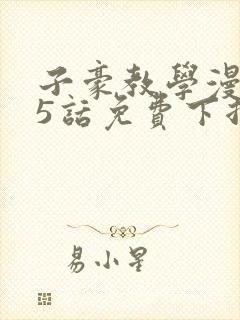 子豪教學漫
5話免費下
易小星